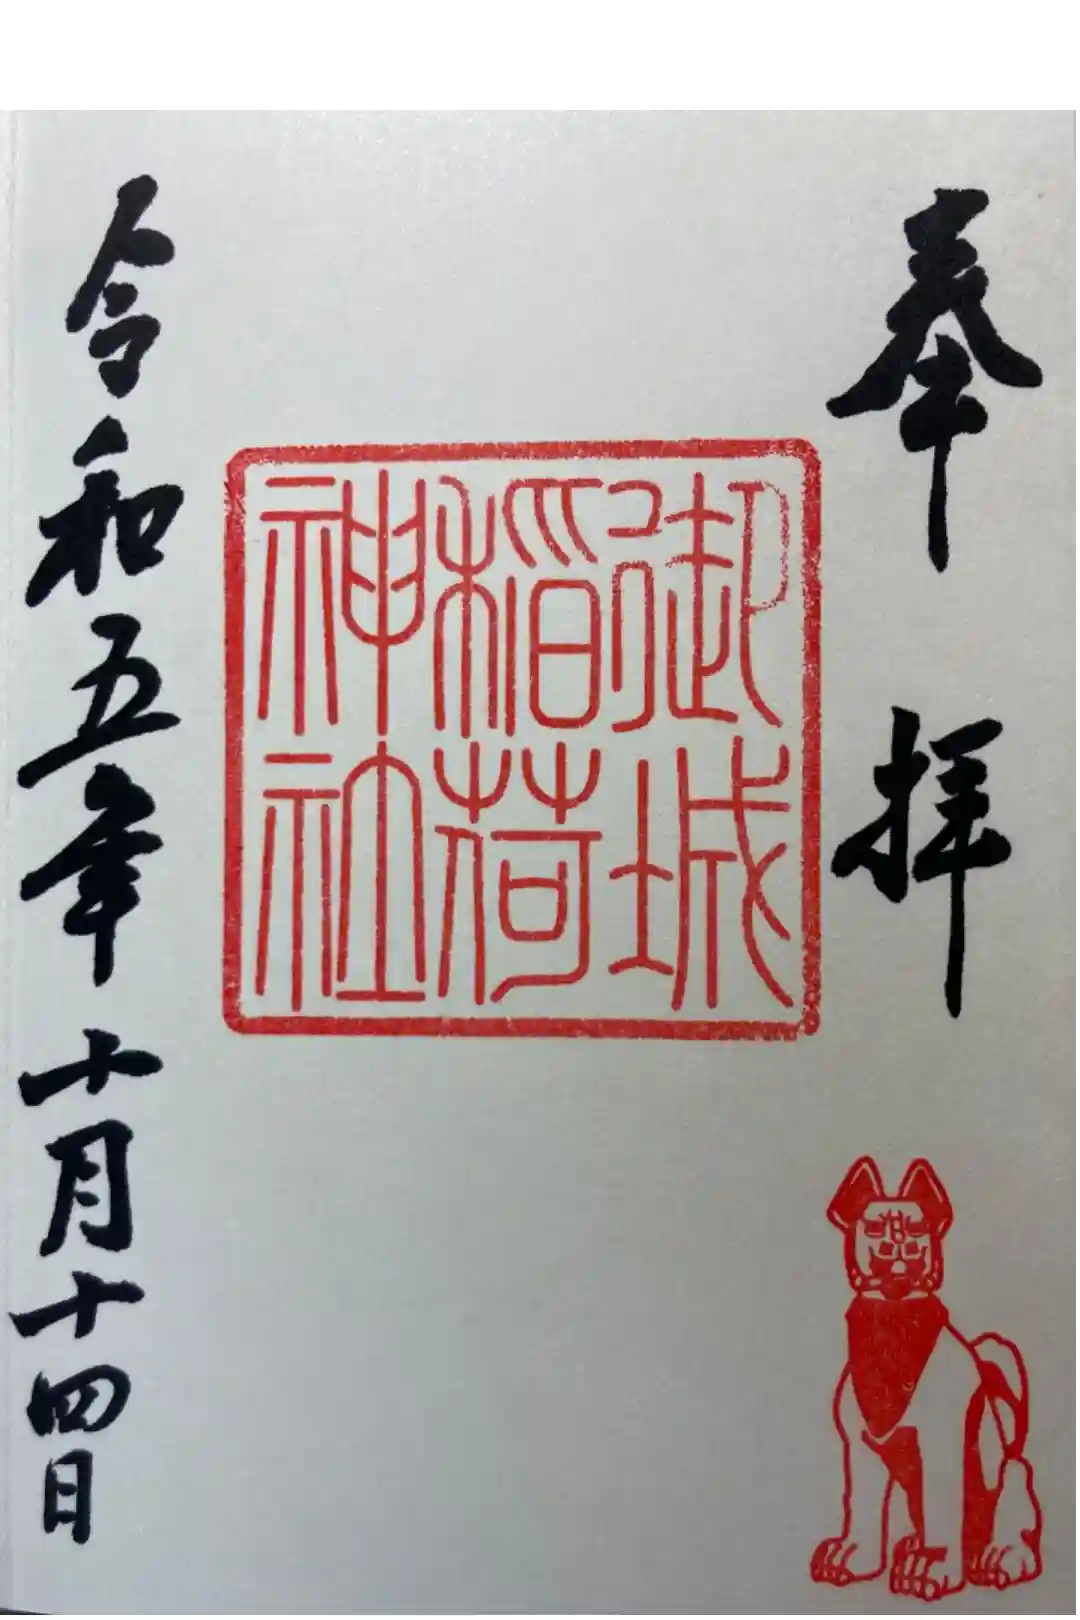 奉拝
御城
稲荷
神社
令和五年十月十四日